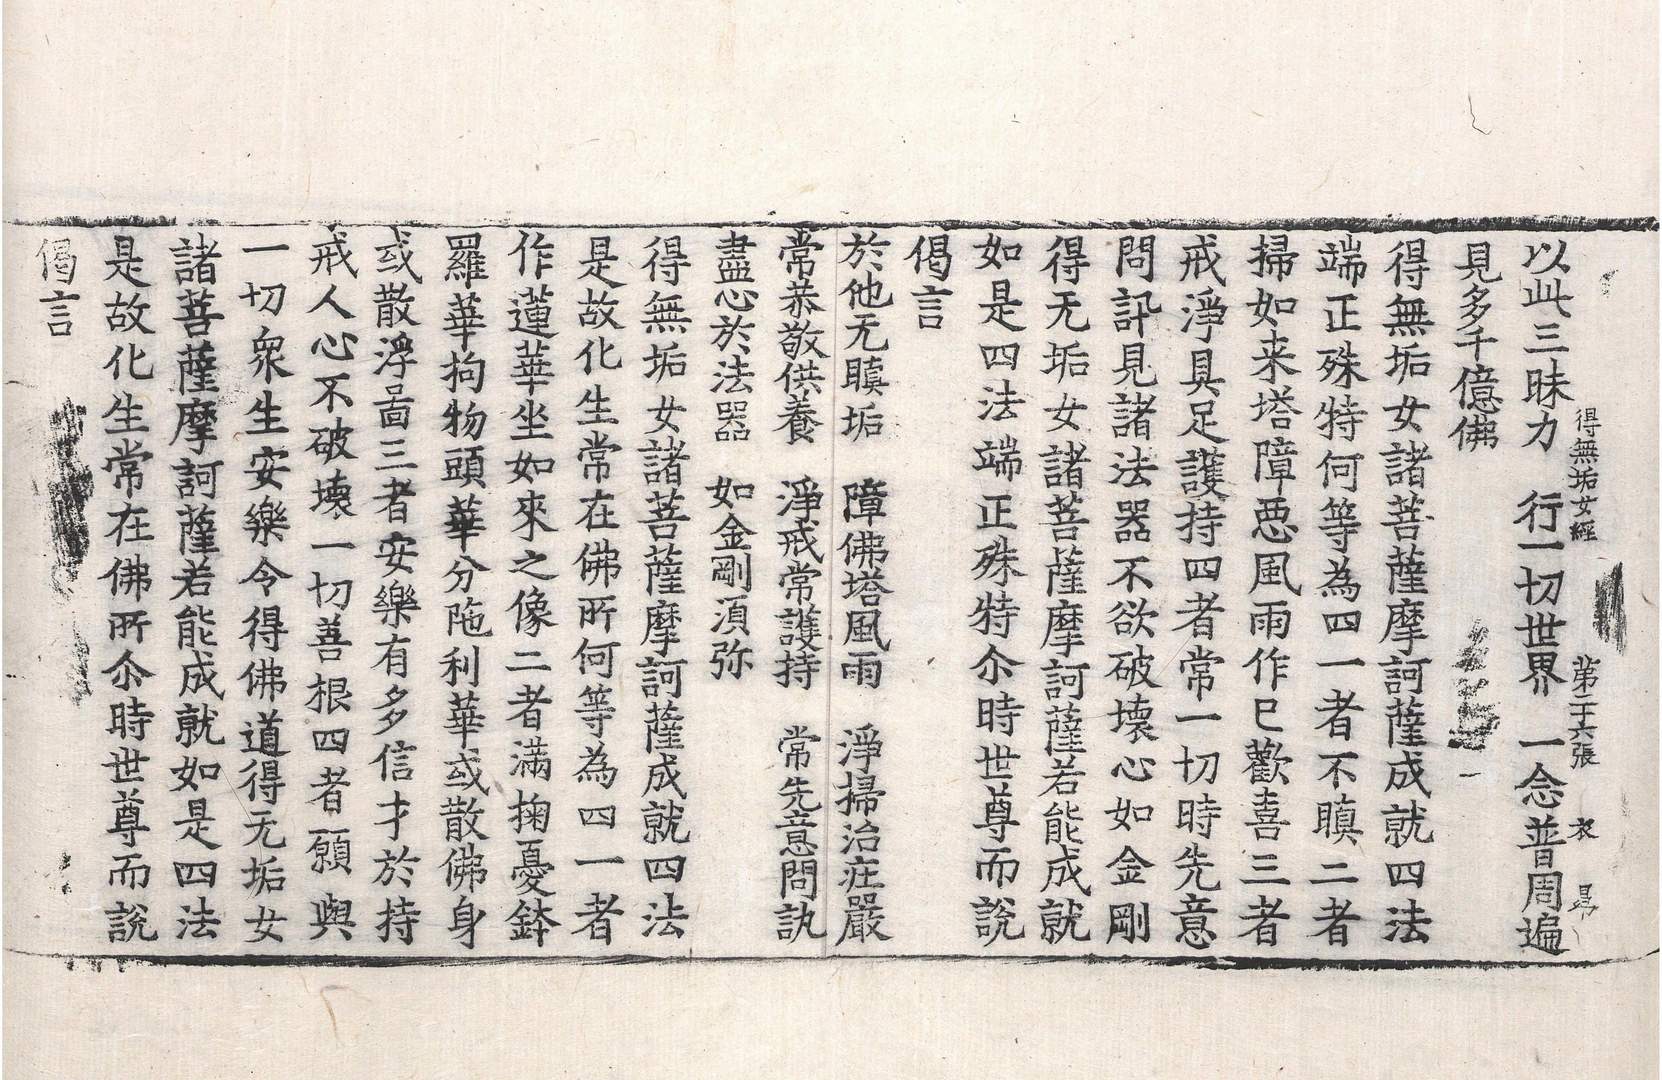 得無垢女經 第二十六張 衣 昻
以此三昧力 行一切世界 一念普周遍
見多千億佛
得無垢女諸菩薩摩訶薩成就四法
端正殊特何等為四一者不瞋二者
掃如来塔障惡風雨作已歡喜三者
戒淨具足護持四者常一切時先意
問訊見諸法器不欲破壞心如金剛
得无垢女諸菩薩摩訶薩若能成就
如是四法端正殊特尒時世尊而說
偈言
於他无瞋垢 障佛塔風雨 淨掃治庄嚴
常恭敬供養 淨戒常護持 常先意問訊
盡心於法器 如金剛湏弥
得無垢女諸菩薩摩訶薩成就四法
是故化生常在佛所何等為四一者
作蓮華坐如來之像二者滿掬憂鉢
羅華拘物頭華分陁利華或散佛身
或散浮啚三者安樂有多信才於持
戒人心不破壞一切善根四者願與
一切衆生安樂令得佛道得无垢女
諸菩薩摩訶薩若能成就如是四法
是故化生常在佛所尒時世尊而說
偈言